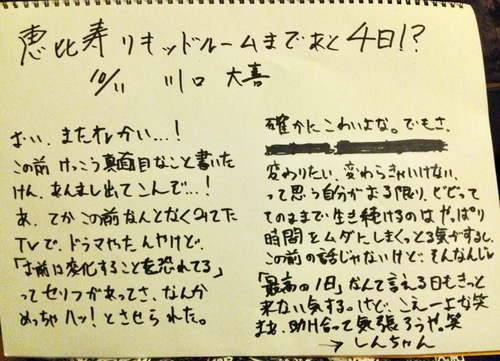 恵比寿リキッドルームまであと4日!?
10/11 川口 大喜
おーい、またオレかい…!
この前 けっこう真面目なこと書いた
けん、あんまし出てこんで…!
あ、てかこの前なんとなくみてた
TVで、ドラマやったんやけど、
「お前は変化することを恐れてる」
ってセリフがあってさ、なんか
めっちゃハッ!とさせられた。
確かにこわいよな。でもさ、
変わりたい、変わらきゃいけない、
って思う自分がある限り、
そのままで生き続けるのは やっぱり
時間をムダにしまくっとる気がするし、
この前の話じゃないけど、そんなんじゃ
「最高の1日」なんて言える日もきっと
来ない気する。けど、こえーよな笑
まぁ、助け合って気張ろうや。笑
→しんちゃん